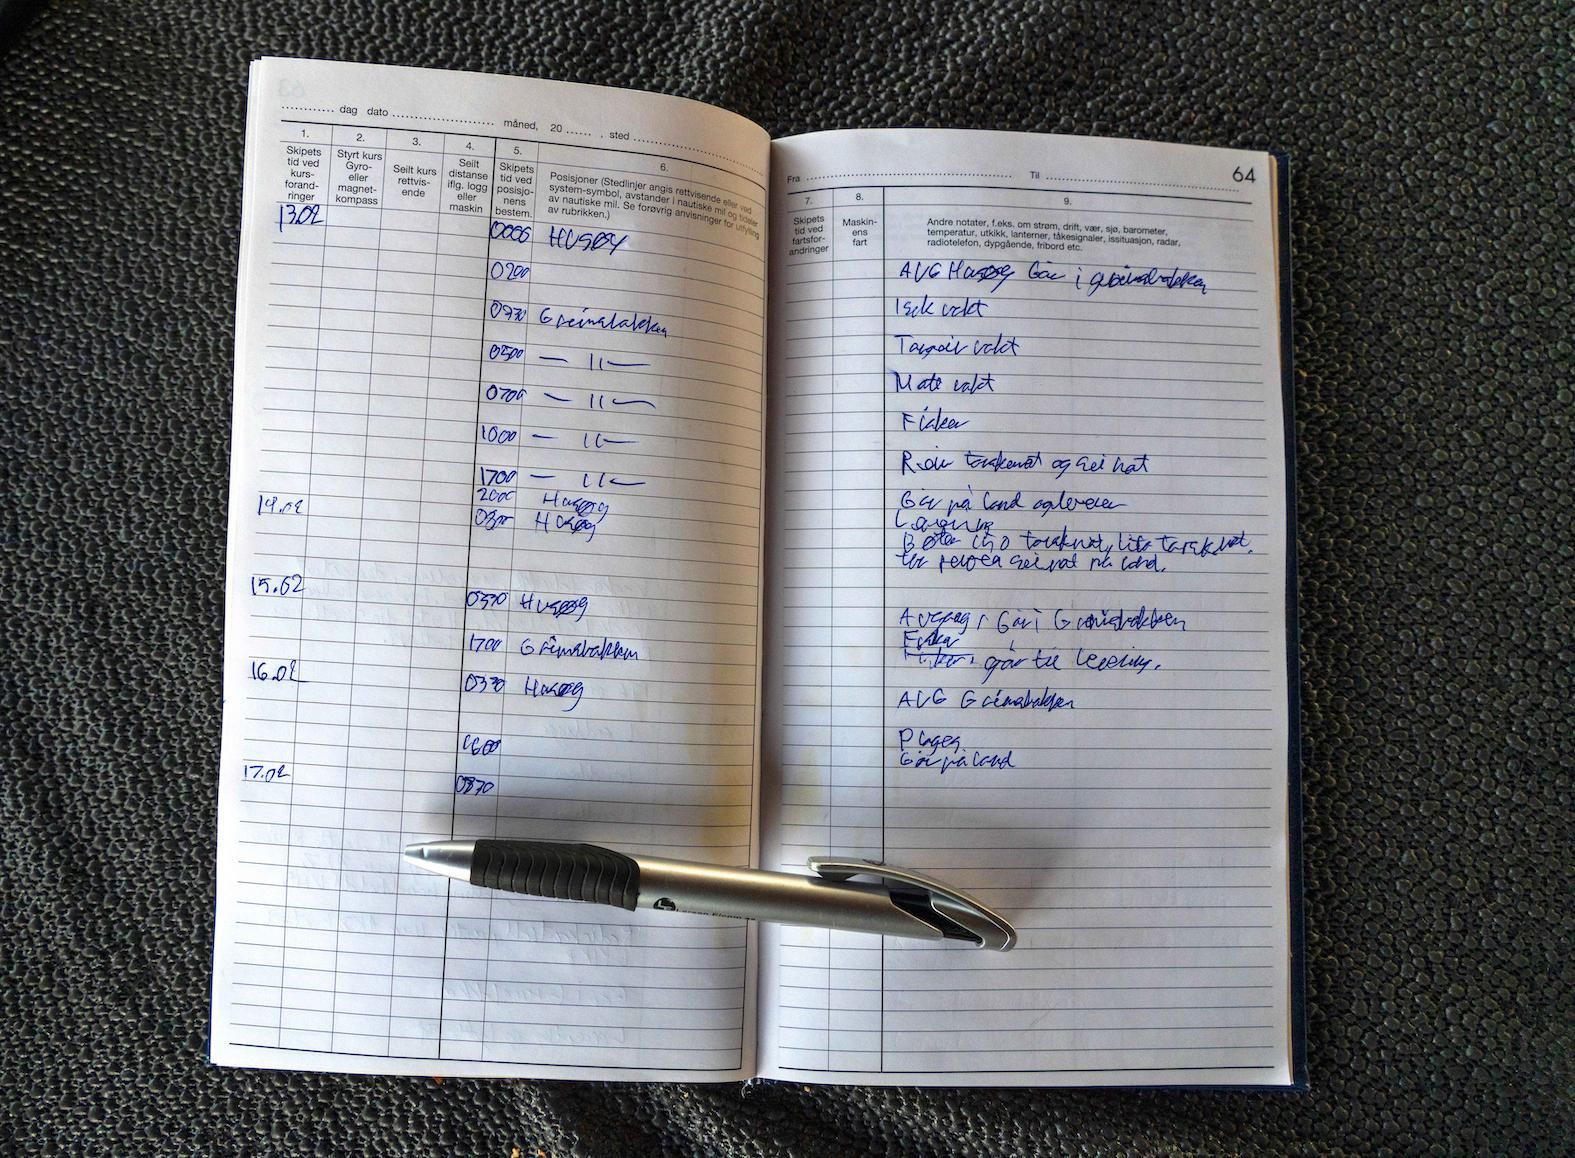 ............ dag dato .............................. måned, 20 ...... , sted ..............................
1.
Skipets
tid ved
kurs-
forand-
ringer
2.
Styrt kurs
Gyro-
eller
magnet-
kompass
3.
Seilt kurs
rettvis-
ende
4.
Seilt
distanse
iflg. logg
eller
maskin
5.
Skipets
tid ved
posisjo-
nens
bestem.
6.
Posisjoner (Stedlinjer angis rettvisende eller ved
system-symbol, avstander i nautiske mil og tideler
av nautiske mil. Se forøvrig anvisninger for utfylling
av rubrikken.)
13.02
0000 HUSØY
0200
Greinsbakken
0500 — 11 —
0700 — 11 —
1000 — 11 —
1700 — 11 —
2000 Husøy
14.02
Husøy
15.02
0330 Husøy
1700 Greinsbakken
16.02
0330 Husøy
1600
17.02
Larsen
Fra .............................. Til .............................. 64
7.
Skipets
tid ved
fartsfor-
andringer
8.
Maskin-
ens
fart
9.
Andre notater, f.eks. om strøm, drift, vær, sjø, barometer,
temperatur, utkikk, lanterner, tåkesignaler, issituasjon, radar,
radiotelefon, dypgående, fribord etc.
AVG Husøy Går i
vakt
vakt
Mate vakt
Fisker
og sei
Går på land og leverer
på land.
Går i Greinsbakken
Fisker
går til levering.
AVG Greinsbakken
Går på land